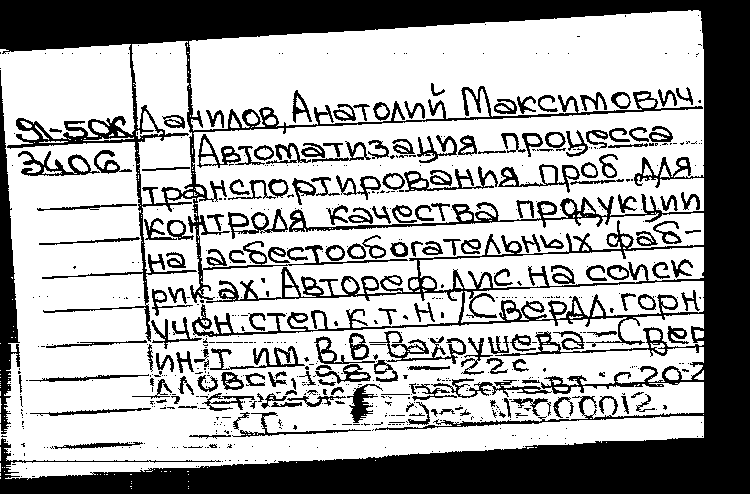 91-5ОК Данилов, Анатолий Максимович.
3406 Автоматизация процесса
транспортирования проб для
контроля качества продукции
на асбестообогатительных фаб-
риках: Автореф. дис. на соиск.
учен. степ. к.т.н. / Свердл. горн
ин-т им. В.В. Вахрушева. – Свер
дловск, 1989. — 22 с.
Список работ авт.: с 20-2
Экз. № 000012.